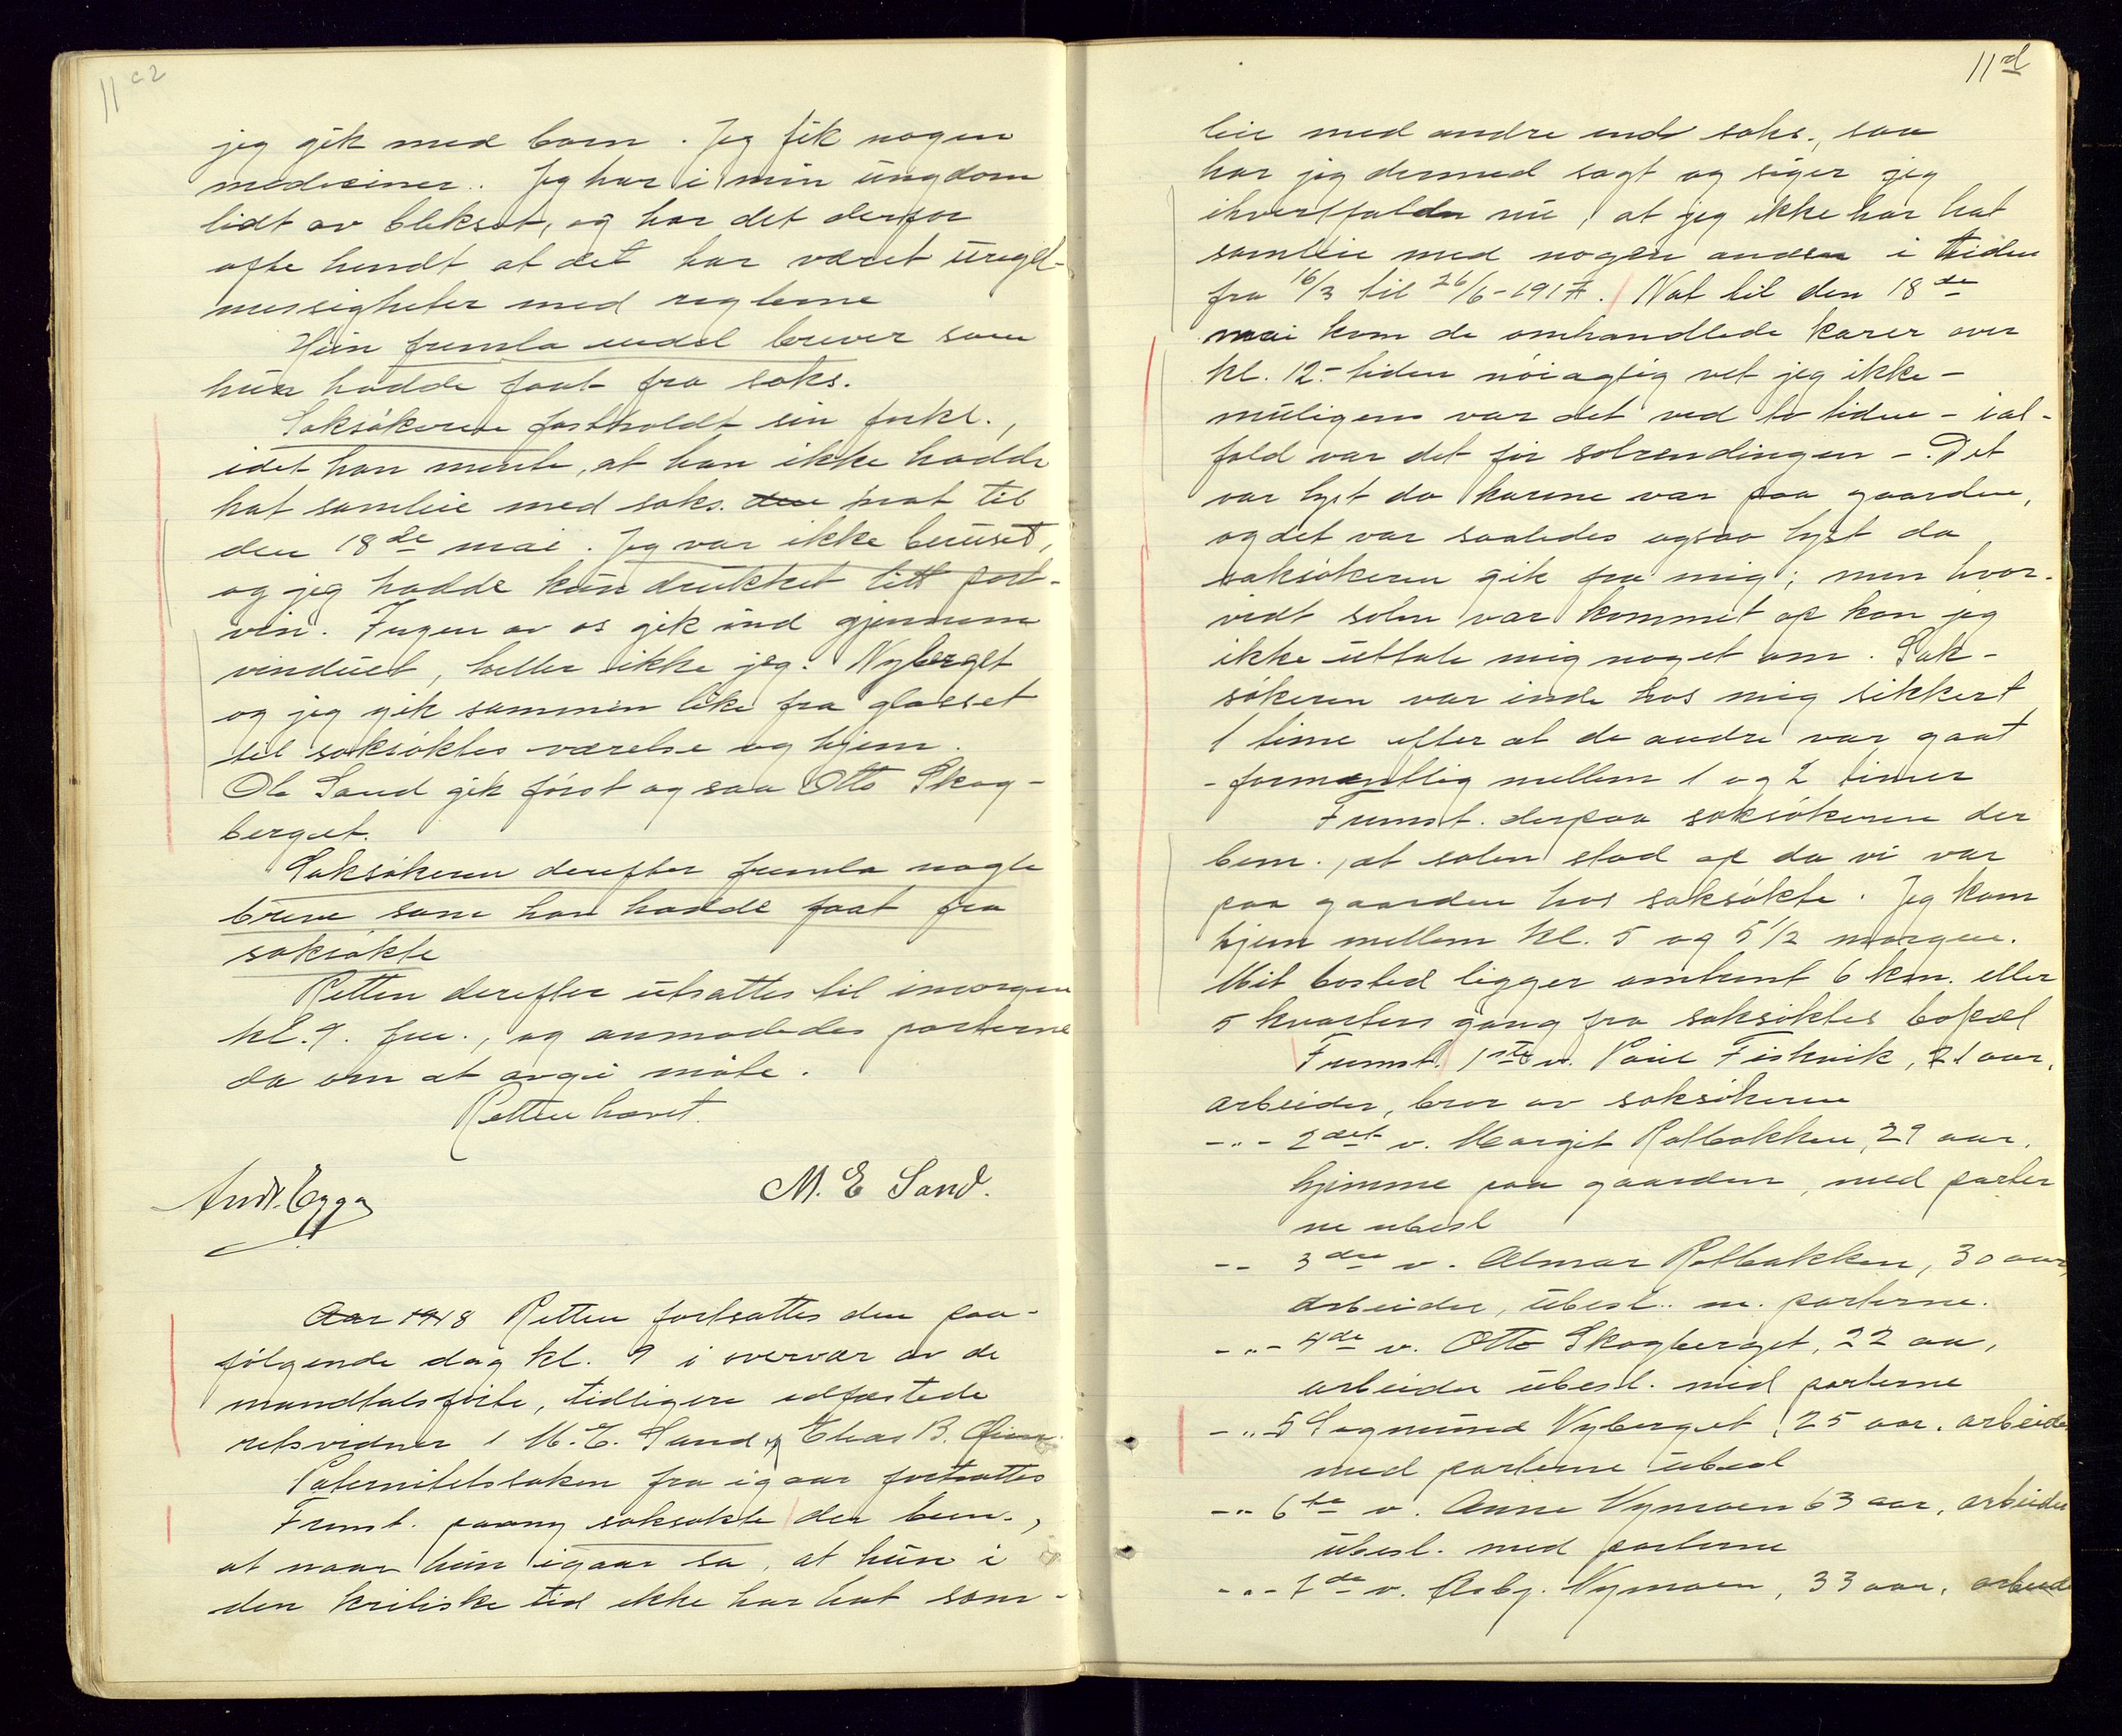 11 c2
jeg gik med barn. Jeg fik nogen
mediciner.. Jeg har i min ungdom
lidt av bleksot, og har det derfor
ofte hendt at det har været uregel-
messigheter med reglerne
Hun fremla endel brever som
hun hadde faat fra saks.
Saksøkeren fastholdt sin forkl.,
idet han mente, at han ikke hadde
hat samleie med saks. den nat til
den 18de mai. Jeg var ikke beruset,
og jeg hadde kun drukket litt port-
vin. Ingen av os gik ind gjennem
vinduet, heller ikke jeg. Nyberget
og jeg gik sammen like fra
til saksøktes værelse og hjem.
Ole Sand gik først og saa Otto Skog-
berget.
Saksøkeren derefter fremla nogle
breve som han hadde faat fra
saksøkte
Retten derefter utsattes til imorgen
kl. 9. fm., og anmodedes parterne
da om at avgi møte.
Retten hævet.
M. E Sand.
Aar 1918 Retten fortsattes den paa-
følgende dag kl. 9 i overvær av de
mandtalsførte, tidligere edfæstede
retsvidner 1 M. E. Sand og Elias B.
Paternitetssaken fra igaar fortsattes
Fremst. paany saksøkte der bem.,
at naar hun igaar sa, at hun i
den kritiske tid ikke har hat sam-
11d
leie med andre end saks., saa
har jeg dermed sagt og siger jeg
ihvertfald nu, at jeg ikke har hat
samleie med nogen anden i tiden
fra 16/3 til 26/6-1917. Nat til den 18de
mai kom de omhandlede karer over
kl. 12.- tiden nøiagtig vet jeg ikke -
muligens var det ved to tiden - ial-
fald var det før solrendingen -. Det
var lyst da karene var paa gaarden,
og det var saaledes ogsaa lyst da
saksøkeren gik fra mig; men hvor-
vidt solen var kommet op kan jeg
ikke uttale mig noget om. Sak-
søkeren var inde hos mig sikkert
1 time efter at de andre var gaat
- formentlig mellem 1 og 2 timer
Fremst. derpaa saksøkeren der
bem., at solen stod op da vi var
paa gaarden hos saksøkte. Jeg kom
hjem mellem kl. 5 og 5 1/2 morgen.
Mit bosted ligger omtrent 6 km. eller
5 kvarters gang fra saksøktes bopæl
Fremst. 1ste v. Paul Fiskvik, 21 aar,
arbeider, bror av saksøkeren
-"- 2det v. Margit Rotbakken, 29 aar,
hjemme paa gaarden, med parter
ne ubesl
-- 3die v. Almar Rotbakken, 30 aar,
arbeider, ubesl.. m. parterne.
-"- 4de v. Otto Skogberget, 22 aa,
arbeider ubesl. med parterne
-"- 5 Sagmund Nyberget, 25 aar, arbeide
med parterne ubesl
-"- 6te v. Anne Nymoen 63 aar, arbeider
ubesl. med parterne
-"- 7de v. Asbj. Nymoen, 33 aar, arbeid